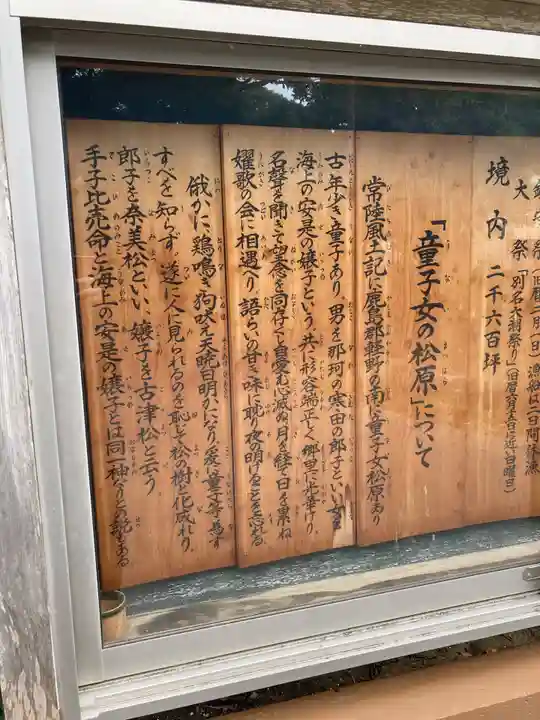 大祭「別名大潮祭り」（旧暦六月十五日に近い日曜日）
境内 二千六百坪
「童子女の松原」について
常陸風土記に鹿島郡軽野の南に童子女松原あり
古年少き童子あり、男を那珂の寒田の郎子といい女を
海上の安是の嬢子という、共に形容端正しく郷里に光華けり、
名聲を聞きて望念を同存じと自愛む心滅ぬ月を経て日を累ね
嬥歌の会に相遇へり、語らいの甘き味に耽り夜の明けることを忘れる
俄かに、鶏鳴き狗吠え天暁け日明かになり、爰に童子等為す
すべを知らず遂に人に見られるのを恥じて松の樹と化成れり、
郎子を奈美松といい、嬢子を古津松と云う
手子比売命と海上の安是の嬢子とは同一神なりとの説もある